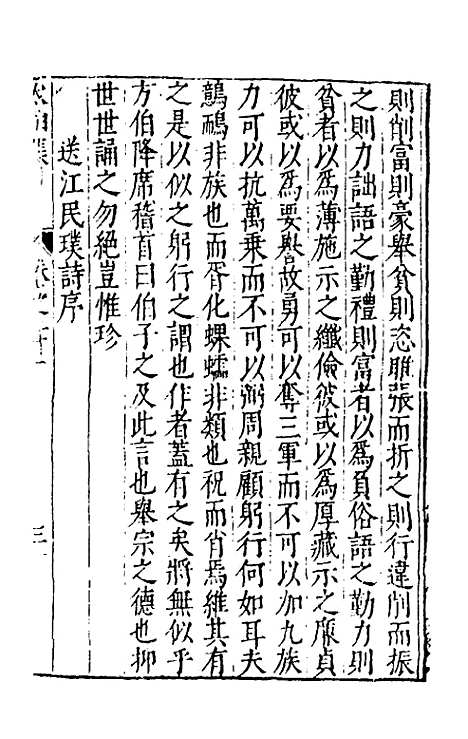 則削富則豪舉貧則恣睢張而折之則行違削而振
之則力詘語之勤禮則富者以爲負俗語之勤力則
貧者以爲薄施示之纖儉彼或以爲厚藏示之廉貞
彼或以爲要譽故勇可以奪三軍而不可以加九族
力可以抗萬乗而不可以弼周親顧躬行何如耳夫
鷾鴯非族也而胥化蜾蠃非類也祝而肖焉維其有
之是以似之躬行之謂也作者蓋有之矣將無似乎
方伯降席稽首曰伯子之及此言也舉宗之德也抑
世世誦之勿絕豈惟珍
送江民璞詩序
卷之
三